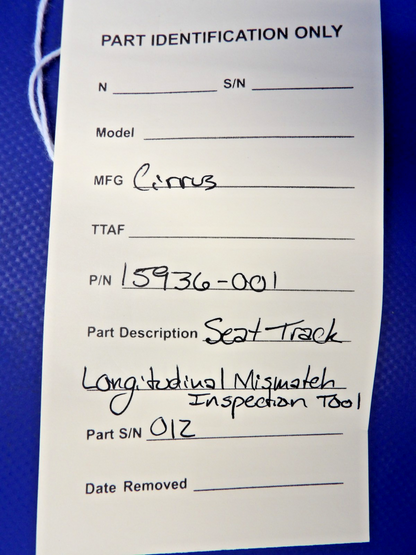 PART IDENTIFICATION ONLY
N S/N
Model
MFG Cirrus
TTAF
P/N 15936-001
Part Description Seat Track
Longitudinal Mismatch
Inspection Tool
Part S/N 012
Date Removed